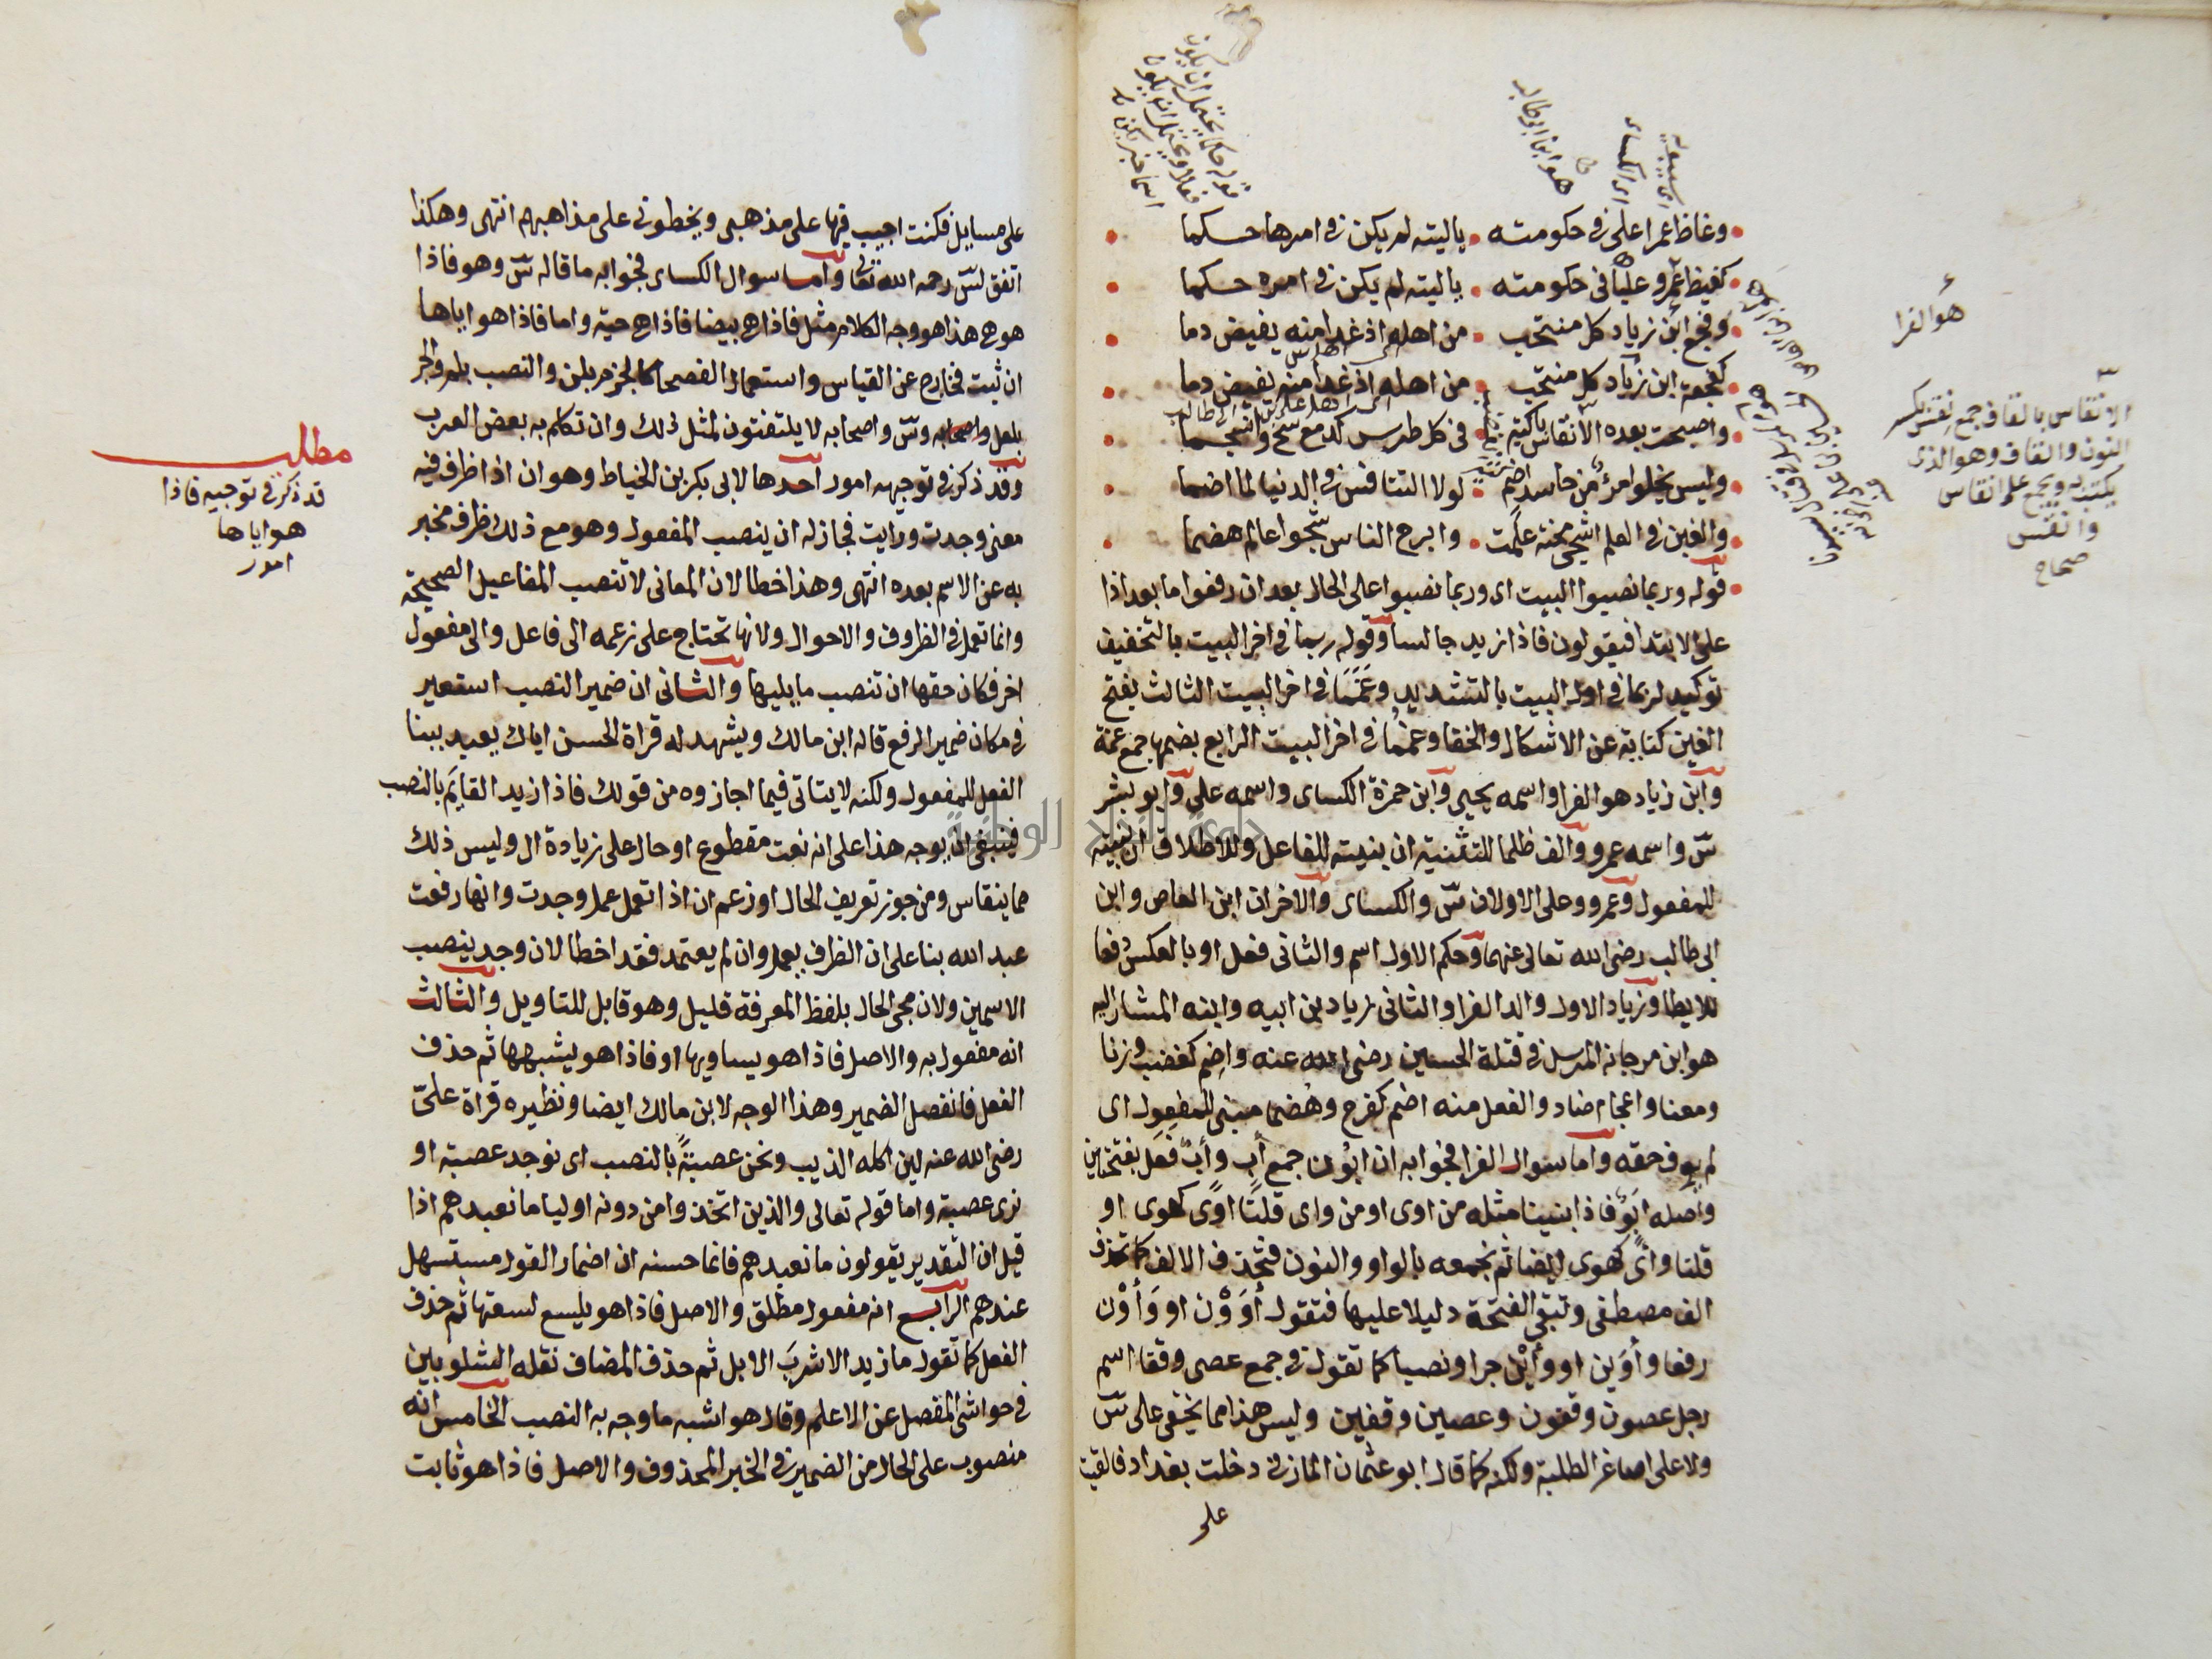 وغاظ عمرا على في حكومته • ياليته لم يكن في امرها حكما
كغيظ عمرو عليا في حكومته • ياليته لم يكن في امره حكما
وفجع ابن زياد كل منتحب • من اهله اذ غدا منه يفيض دما
كفجعة ابن زياد كل منتحب • من اهله اذ غدا منه يفيض دما
واصبحت بعده الانقاس باكية • في كل طرس كدمع سح وانسجما
وليس يخلو امرؤ من حاسد اضم • لولا التنافس في الدنيا لما اضما
والغبن في العلم اشجى محنة علمت • وابرح الناس شجوا عالم هضما
قوله وربما نصبوا البيت اى وربما نصبوا على الحال بعد ان رفعوا ما بعد اذا
على الابتدا فيقولون فاذا زيد جالسا وقوله ربما في اخر البيت بالتخفيف
توكيد لربما في اول البيت بالتشديد وغمما في اخر البيت الثالث بفتح
الغين كناية عن الاشكال والخفا وغمما في اخر البيت الرابع بضمها جمع غمة
وابن زياد هو الفرا واسمه يحيى وابن حمزة الكساى واسمه على وابو بشر
س واسمه عمرو والف ظلما للتثنية ان بنيته للفاعل وللاطلاق ان بنيته
للمفعول وعمرو وعلى الاولان س والكساى والاخران ابن العاص وابن
ابى طالب رضى الله تعالى عنهما وحكما الاول اسم والثانى فعل او بالعكس دفعا
للايطا وزياد الاول والد الفرا والثانى زياد بن ابيه وابنه المشار اليه
هو ابن مرجانة المرسل في قتلة الحسين رضى الله عنه واضم كغضب وزنا
ومعنا واعجام ضاد والفعل منه اضم كفرح وهضما مبنى للمفعول اى
لم يوف حقه واما سوال الفرا فجوابه ان ابون جمع اب وأب فعل بفتحتين
واصله ابو فاذا بنينا مثله من اوى او من واى قلنا اوى كهوى او
قلنا وأى كهوى ايضا ثم نجمعه بالواو والنون فتحذف الالف كما تحذف
الف مصطفى وتبقى الفتحة دليلا عليها فتقول أوون او وأون
رفعا وأوين او وأين جرا ونصبا كما تقول في جمع عصى وقفا اسم
رجل عصون وقفون وعصين وقفين وليس هذا مما يخفى على س
ولا على اصاغر الطلبة ولكنه كما قال ابو عثمان المازنى دخلت بغداد فالقيت
على
اى سيبويه
اى الكساى
هو ابن ابى طالب
هو الفرا
الانقاس بالقاف جمع نقس بكسر
النون والقاف وهو الذى
يكتب به ويجمع على انقاس
وانقس
صحاح
على مسايل فكنت اجيب فيها على مذهبى ويخطونى على مذاهبهم انتهى وهكذا
اتفق لس رحمه الله تعالى واما سوال الكساى فجوابه ما قاله س وهو فاذا
هو هى هذا هو وجه الكلام مثل فاذا هى بيضا فاذا هى حية واما فاذا هو اياها
ان ثبت فخارج عن القياس واستعمال الفصحا كالجزم بلن والنصب بلم والجر
بلعل واصحابه وس واصحابه لا يلتفتون لمثل ذلك وان تكلم به بعض العرب
وقد ذكر في توجيهه امور احدها لابى بكر بن الخياط وهو ان اذا ظرف فيه
معنى وجدت ورايت فجاز له ان ينصب المفعول وهو مع ذلك ظرف مخبر
به عن الاسم بعده انتهى وهذا خطا لان المعانى لا تنصب المفاعيل الصحيحة
وانما تعمل في الظروف والاحوال ولانها تحتاج على زعمه الى فاعل والى مفعول
اخر فكان حقها ان تنصب ما يليها والثانى ان ضمير النصب استعير
في مكان ضمير الرفع قاله ابن مالك ويشهد له قراة الحسن اياك يعبد ببنا
الفعل للمفعول ولكنه لا يتاتى فيما اجازوه من قولك فاذا زيد القايم بالنصب
فينبغى ان يوجه هذا على انه نعت مقطوع او حال على زيادة ال وليس ذلك
مما ينقاس ومن جوز تعريف الحال او زعم ان اذا تعمل عمل وجدت وانها رفعت
عبد الله بنا على ان الظرف يعمل وان لم يعتمد فقد اخطا لان وجد ينصب
الاسمين ولان مجى الحال بلفظ المعرفة قليل وهو قابل للتاويل والثالث
انه مفعول به والاصل فاذا هو يساويها او فاذا هو يشبهها ثم حذف
الفعل فانفصل الضمير وهذا الوجه لابن مالك ايضا ونظيره قراة على
رضى الله عنه لين اكله الذيب ونحن عصبة بالنصب اى نوجد عصبة او
نرى عصبة واما قوله تعالى والذين اتخذوا من دونه اوليا ما نعبدهم اذا
قيل ان التقدير يقولون ما نعبدهم فانما حسنه ان اضمار القول مستسهل
عندهم الرابع انه مفعول مطلق والاصل فاذا هو يلسع لسعتها ثم حذف
الفعل كما تقول ما زيد الا شرب الابل ثم حذف المضاف نقله الشلوبين
في حواشى المفصل عن الاعلم وقال هو اشبه ما وجه به النصب الخامس انه
منصوب على الحال من الضمير في الخبر المحذوف والاصل فاذا هو ثابت
مطلب
قد ذكر في توجيه فاذا
هو اياها
امور